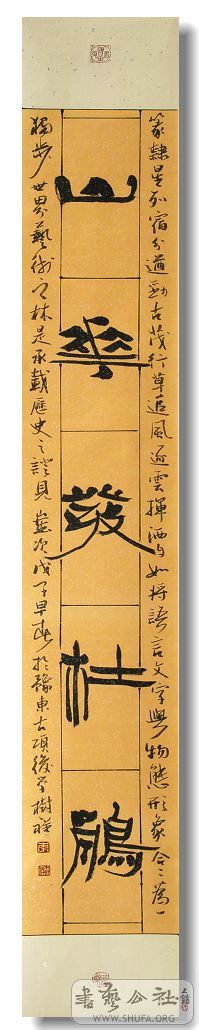 篆隸星列宿分遒勁古茂行草追風逐雲揮洒自如將語言文字與物態形象合二為一
山華發杜鵑
獨步世界藝術之林是承載歷史之證見歲次戊子早春於豫東古項後學樹祥
書藝公社
WWW.SHUFA.ORG